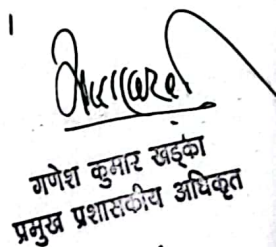 गणेश कुमार खड्का
प्रमुख प्रशासकीय अधिकृत